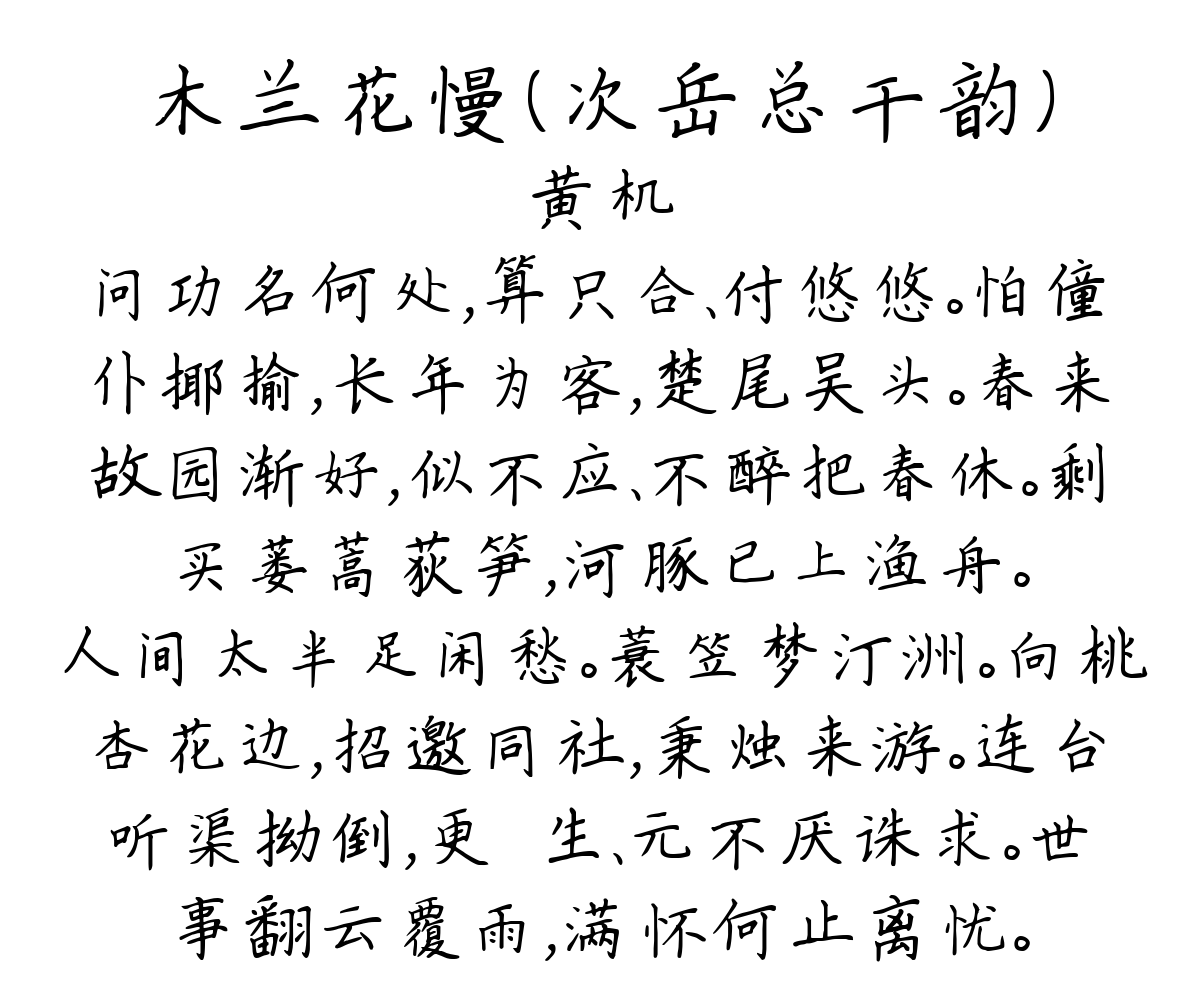 木兰花慢(次岳总干韵)
黄机
问功名何处,算只合、付悠悠。怕僮
仆揶揄,长年为客,楚尾吴头。春来
故园渐好,似不应、不醉把春休。剩
买蒌蒿荻笋,河豚已上渔舟。
人间太半足闲愁。蓑笠梦汀洲。向桃
杏花边,招邀同社,秉烛来游。连台
听渠拗倒,更 生、元不厌诛求。世
事翻云覆雨,满怀何止离忧。